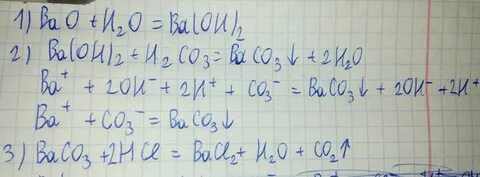 1) BaO + H₂O = Ba(OH)₂
2) Ba(OH)₂ + H₂CO₃ = BaCO₃↓ + 2H₂O
Ba⁺ + 2OH⁻ + 2H⁺ + CO₃⁻ = BaCO₃↓ + 2OH⁻ + 2H⁺
Ba⁺ + CO₃⁻ = BaCO₃↓
3) BaCO₃ + 2HCl = BaCl₂ + H₂O + CO₂↑